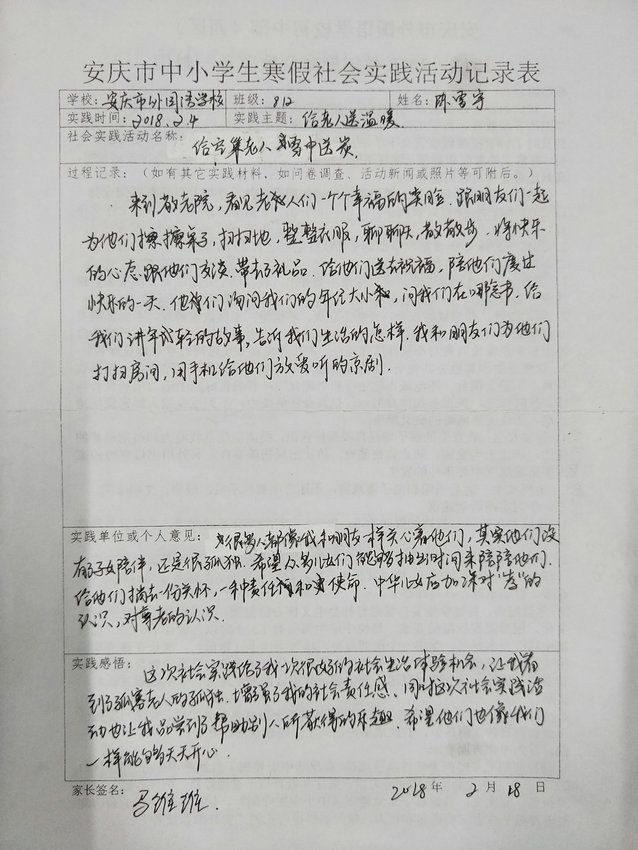 安庆市中小学生寒假社会实践活动记录表
学校：安庆市外国语学校 班级：812 姓名：陈雪宇
实践时间：2018.2.4 实践主题：给老人送温暖
社会实践活动名称：
给孤寡老人雪中送炭
过程记录：（如有其它实践材料、如问卷调查、活动新闻或照片等可附后。）
来到敬老院，看见老人们一个个幸福的笑脸．跟朋友们一起
为他们擦擦桌子，扫扫地，整整衣服，聊聊天，散散步．将快乐
的心态跟他们交谈．带去了礼品．给他们送去祝福，陪他们度过
快乐的一天．他们询问我们的年纪大小，问我们在哪念书．给
我们讲年轻的故事，告诉我们生活的怎样．我和朋友们为他们
打扫房间，用手机给他们放爱听的京剧．
实践单位或个人意见：很多人都像我和朋友一样关心着他们，其实他们没
有子女陪伴，还是很孤独．希望儿女们能够抽出时间来陪陪他们．
给他们揣去一份关怀，一种责任和使命．中华儿女应加深对“孝”的
认识，对尊老的认识．
实践感悟：这次社会实践给了我一次很好的社会生活体验机会，让我看
到了孤寡老人的孤独．增强了我的社会责任感．同时这次社会实践活
动也让我品尝到了帮助别人所获得的乐趣．希望他们也像我们
一样能够天天开心．
家长签名： 2018年 2月 18日